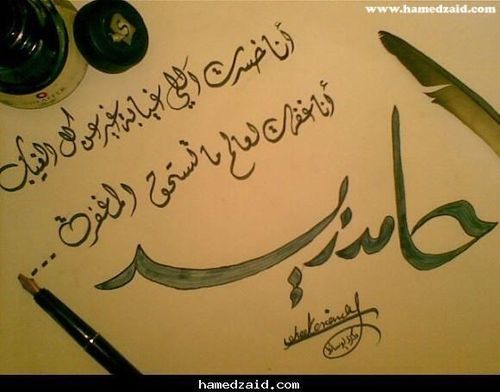 www.hamedzaid.com
أنا خسرت اللي غيابة غير عن كل الغياب
أنا غفرت لعالم ما تستحق المغفرة
حامد زيد
hamedzaid.com